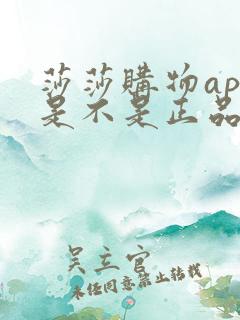 莎莎購物ap
是不是正品
吴立官
未经同意禁止转载